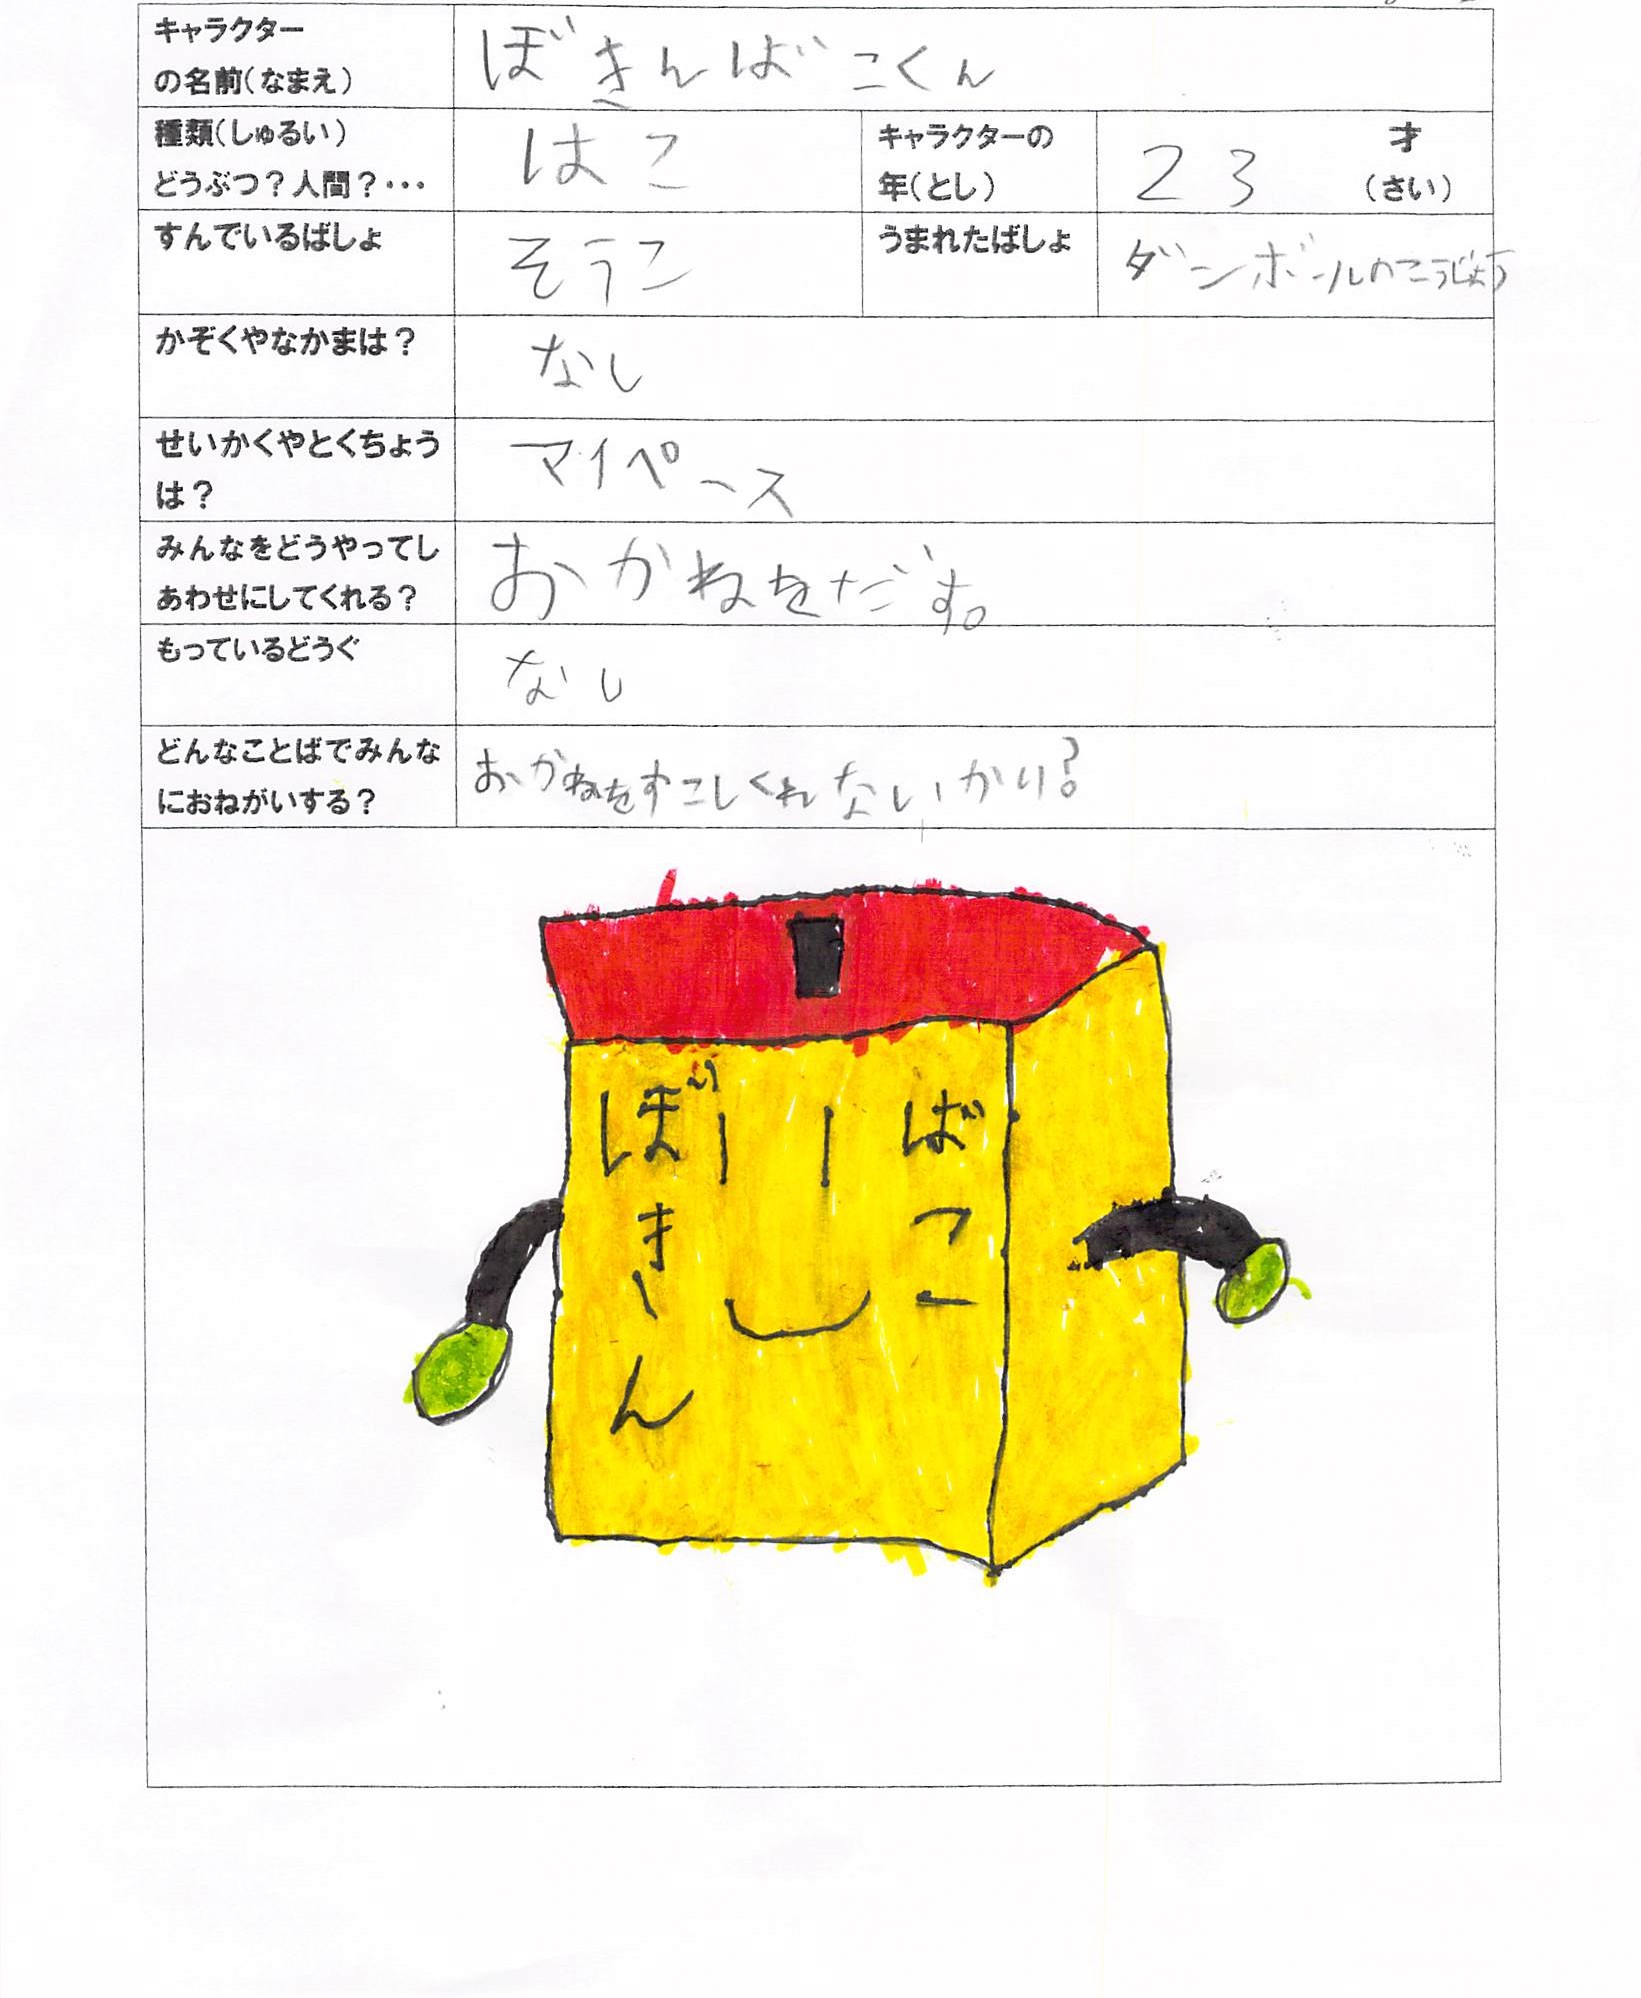 キャラクター
の名前(なまえ)
ぼきんばこくん
種類(しゅるい)
どうぶつ?人間?・・・
はこ
キャラクターの
年(とし)
23
才
(さい)
すんでいるばしょ
そうこ
うまれたばしょ
ダンボールのこうじょう
かぞくやなかまは?
なし
せいかくやとくちょう
は?
マイペース
みんなをどうやってし
あわせにしてくれる?
おかねをだす。
もっているどうぐ
なし
どんなことばでみんな
におねがいする?
おかねをすこしくれないかい?
ぼきん
ばこ